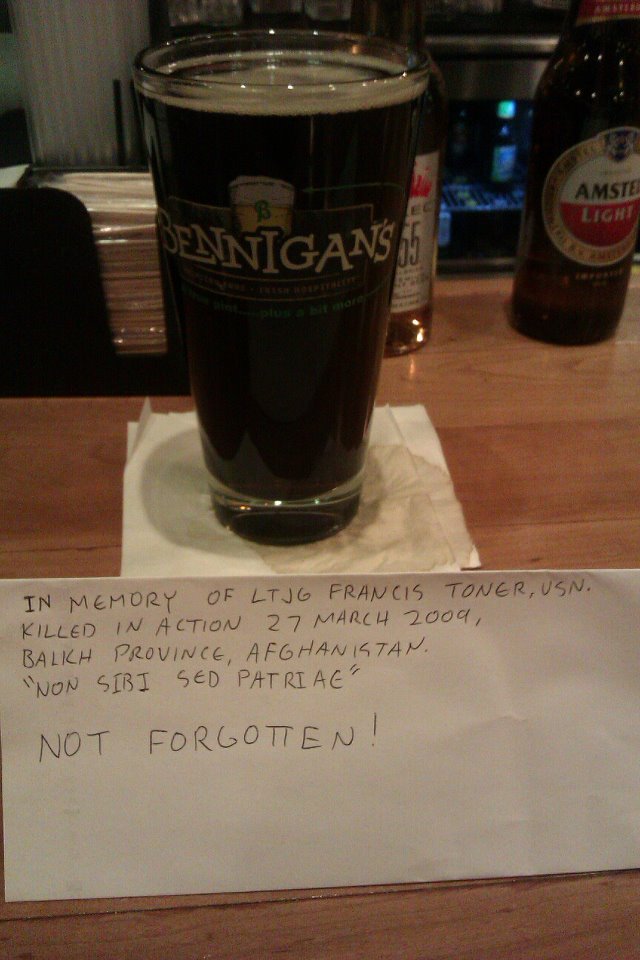 BENNIGAN'S
IRISH HOSPITALITY
plus a bit more
55
AMSTEL
LIGHT
IN MEMORY OF LTJG FRANCIS TONER, USN.
KILLED IN ACTION 27 MARCH 2009,
BALKH PROVINCE, AFGHANISTAN.
"NON SIBI SED PATRIAE"
NOT FORGOTTEN!